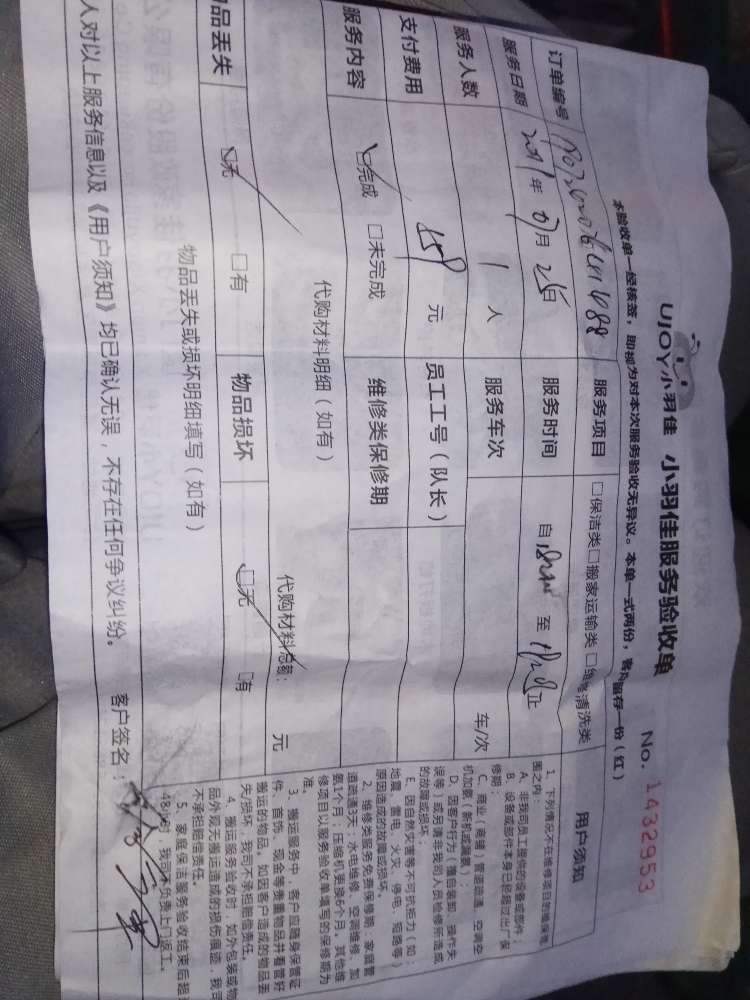 UJOY小羽佳 小羽佳服务验收单
No. 1432953
本验收单一经核签，即视为对本次服务验收无异议。本单一式两份，客户留存一份（红）
订单编号
服务项目 □保洁类□搬家运输类□维修清洗类
服务日期 年 月 日
服务时间 自 至 止
服务人数 1 人
服务车次 车/次
支付费用 元
员工工号（队长）
服务内容 ☑完成 □未完成
维修类保修期
代购材料明细（如有）
代购材料总额： 元
物品丢失 ☑无 □有
物品损坏 ☑无 □有
物品丢失或损坏明细填写（如有）
人对以上服务信息以及《用户须知》均已确认无误，不存在任何争议纠纷。
客户签名：
用户须知
1、下列情况不在维修项目的维保范
围之内：
A、非我司员工原修的设备或部件；
B、设备或部件本身已经超过出厂保
修期；
C、商业（商铺）管道疏通、空调空
机加氨（新机或漏氨）；
D、因客户行为（擅自装卸、操作失
误等）或另请非我司人员检修所造成
的故障或损坏；
E、因自然灾害等不可抗拒力（如：
地震、雷电、火灾、停电、短路等）
原因造成的故障或损坏。
2、维修类服务免费保修期：家庭管
道疏通3天；水电维修、空调维修、加
氨1个月；压缩机更换6个月。其他维
修项目以服务验收单填写的保修期为
准。
3、搬运服务中，客户应随身保管证
件、首饰、现金等贵重物品并看管好
搬运的物品。如因客户造成的物品丢
失/损坏，我司不承担赔偿责任。
4、搬运服务验收时，如外包装或物
品外观无搬运造成的损伤痕迹，我司
不承担赔偿责任。
5、家庭保洁服务验收结束后超
48小时，我司不负责上门返工。